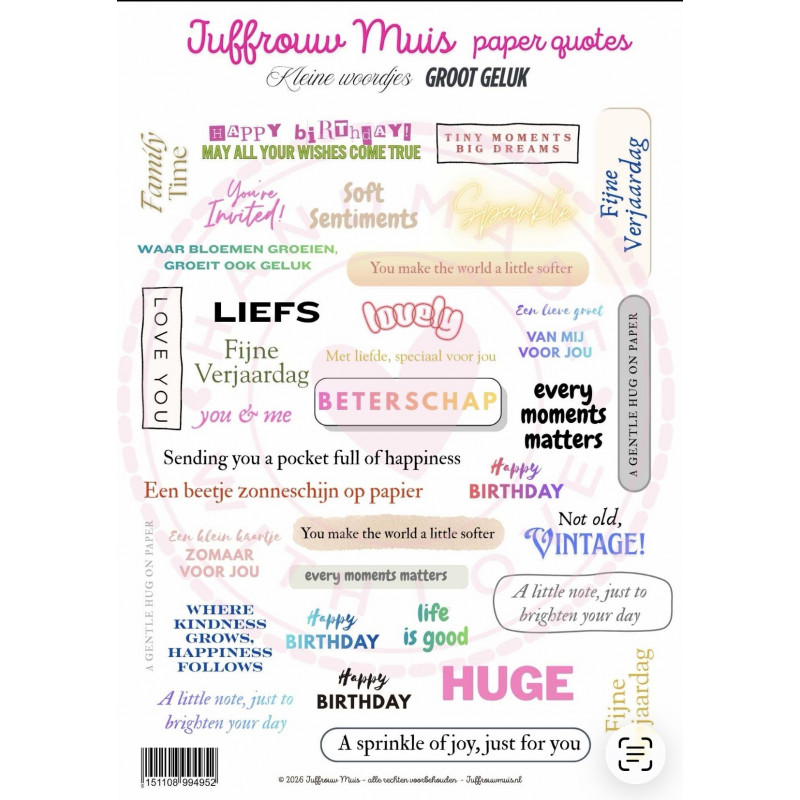 Juffrouw Muis paper quotes
Kleine woordjes GROOT GELUK
Family
Time
HAPPY biRThdAY!
MAY ALL YOUR WISHES COME TRUE
TINY MOMENTS
BIG DREAMS
Fijne
Verjaardag
You're
Invited!
Soft
Sentiments
Sparkle
WAAR BLOEMEN GROEIEN,
GROEIT OOK GELUK
You make the world a little softer
LOVE YOU
LIEFS
lovely
Een lieve groet
VAN MIJ
VOOR JOU
A GENTLE HUG ON PAPER
Fijne
Verjaardag
Met liefde, speciaal voor jou
BETERSCHAP
you & me
every
moments
matters
Sending you a pocket full of happiness
Happy
BIRTHDAY
Een beetje zonneschijn op papier
A GENTLE HUG ON PAPER
Een klein kaartje
ZOMAAR
VOOR JOU
You make the world a little softer
Not old,
VINTAGE!
every moments matters
A little note, just to
brighten your day
WHERE
KINDNESS
GROWS,
HAPPINESS
FOLLOWS
Happy
BIRTHDAY
life
is good
A little note, just to
brighten your day
Happy
BIRTHDAY
HUGE
Fijne
jaardag
A sprinkle of joy, just for you
151108 994952
© 2026 Juffrouw Muis - alle rechten voorbehouden - Juffrouwmuis.nl